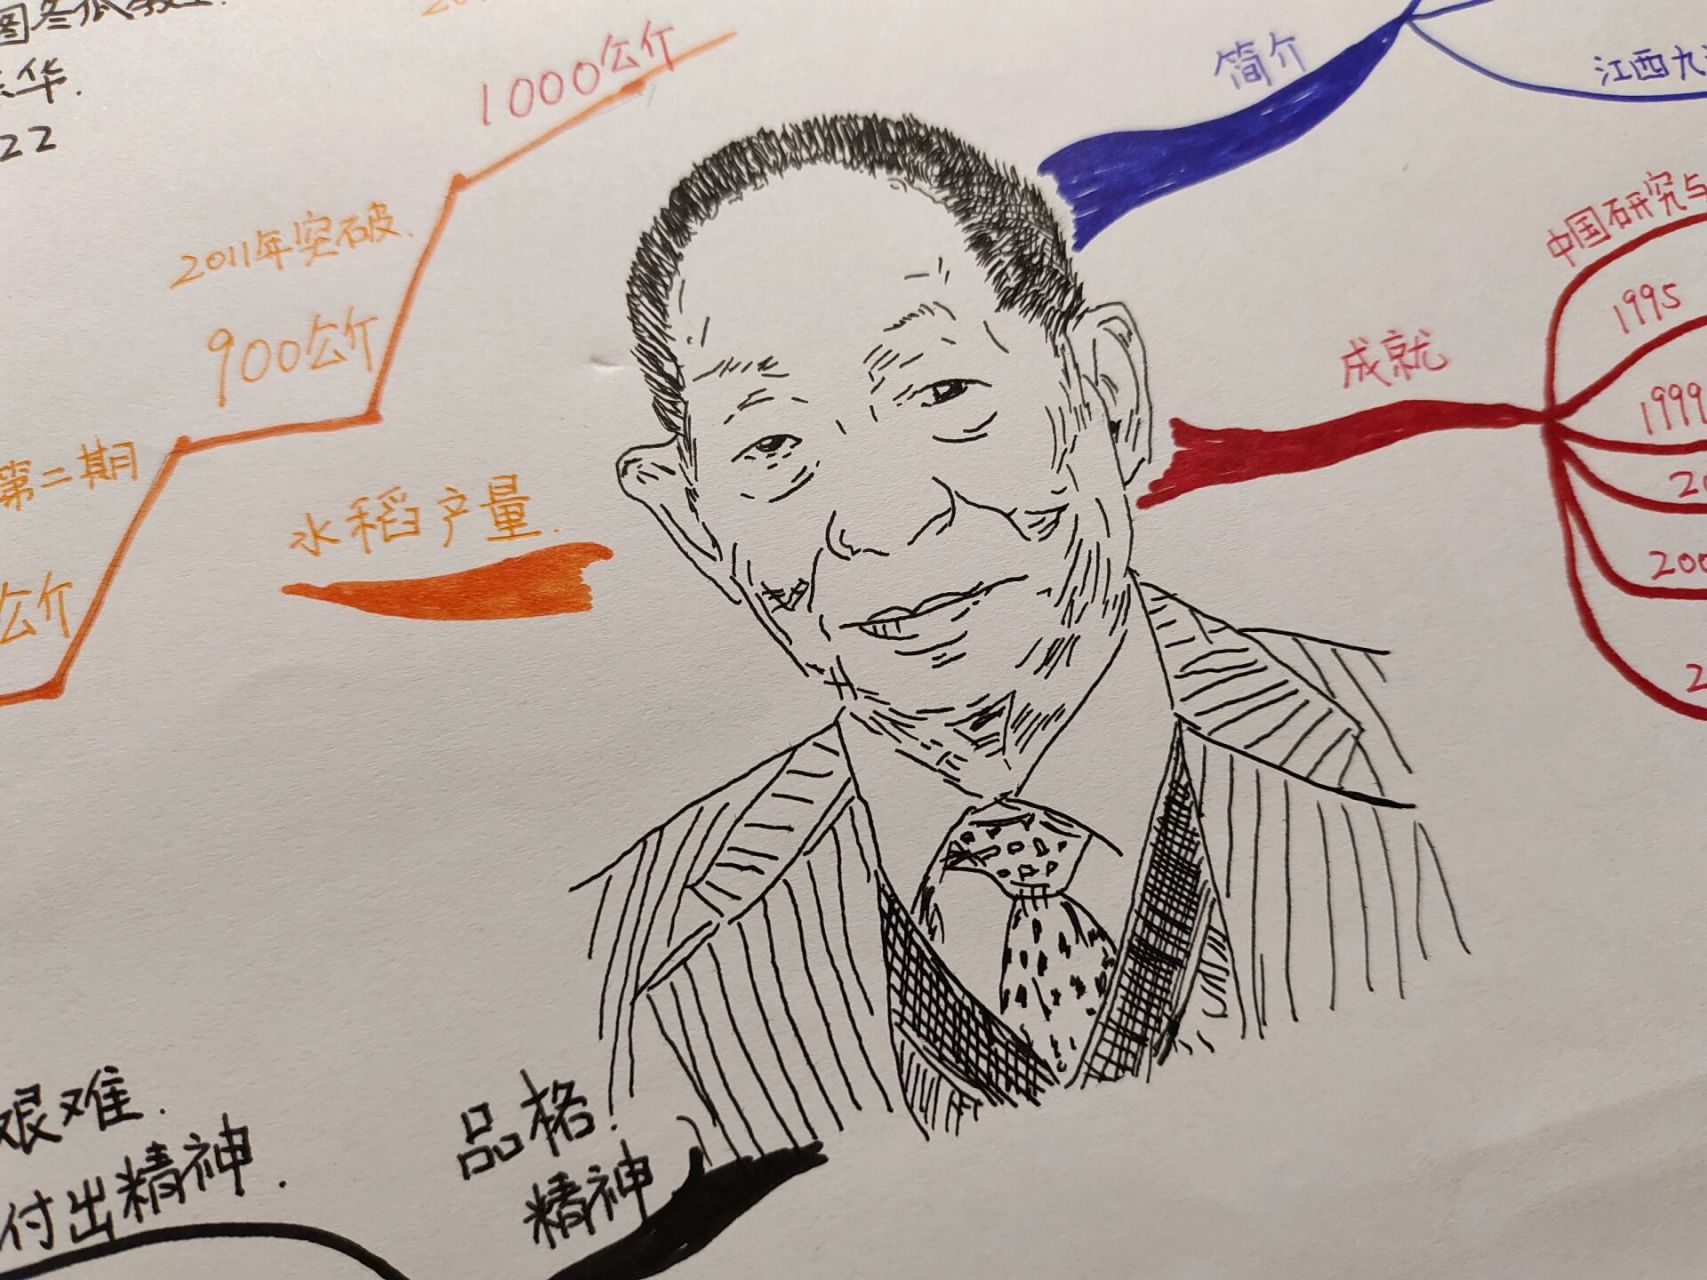 华.
22
1000公斤
2011年突破.
900公斤
第二期
公斤
水稻产量.
简介
江西九
中国研究与
成就
1995
1999
200
艰难.
付出精神.
品格.
精神